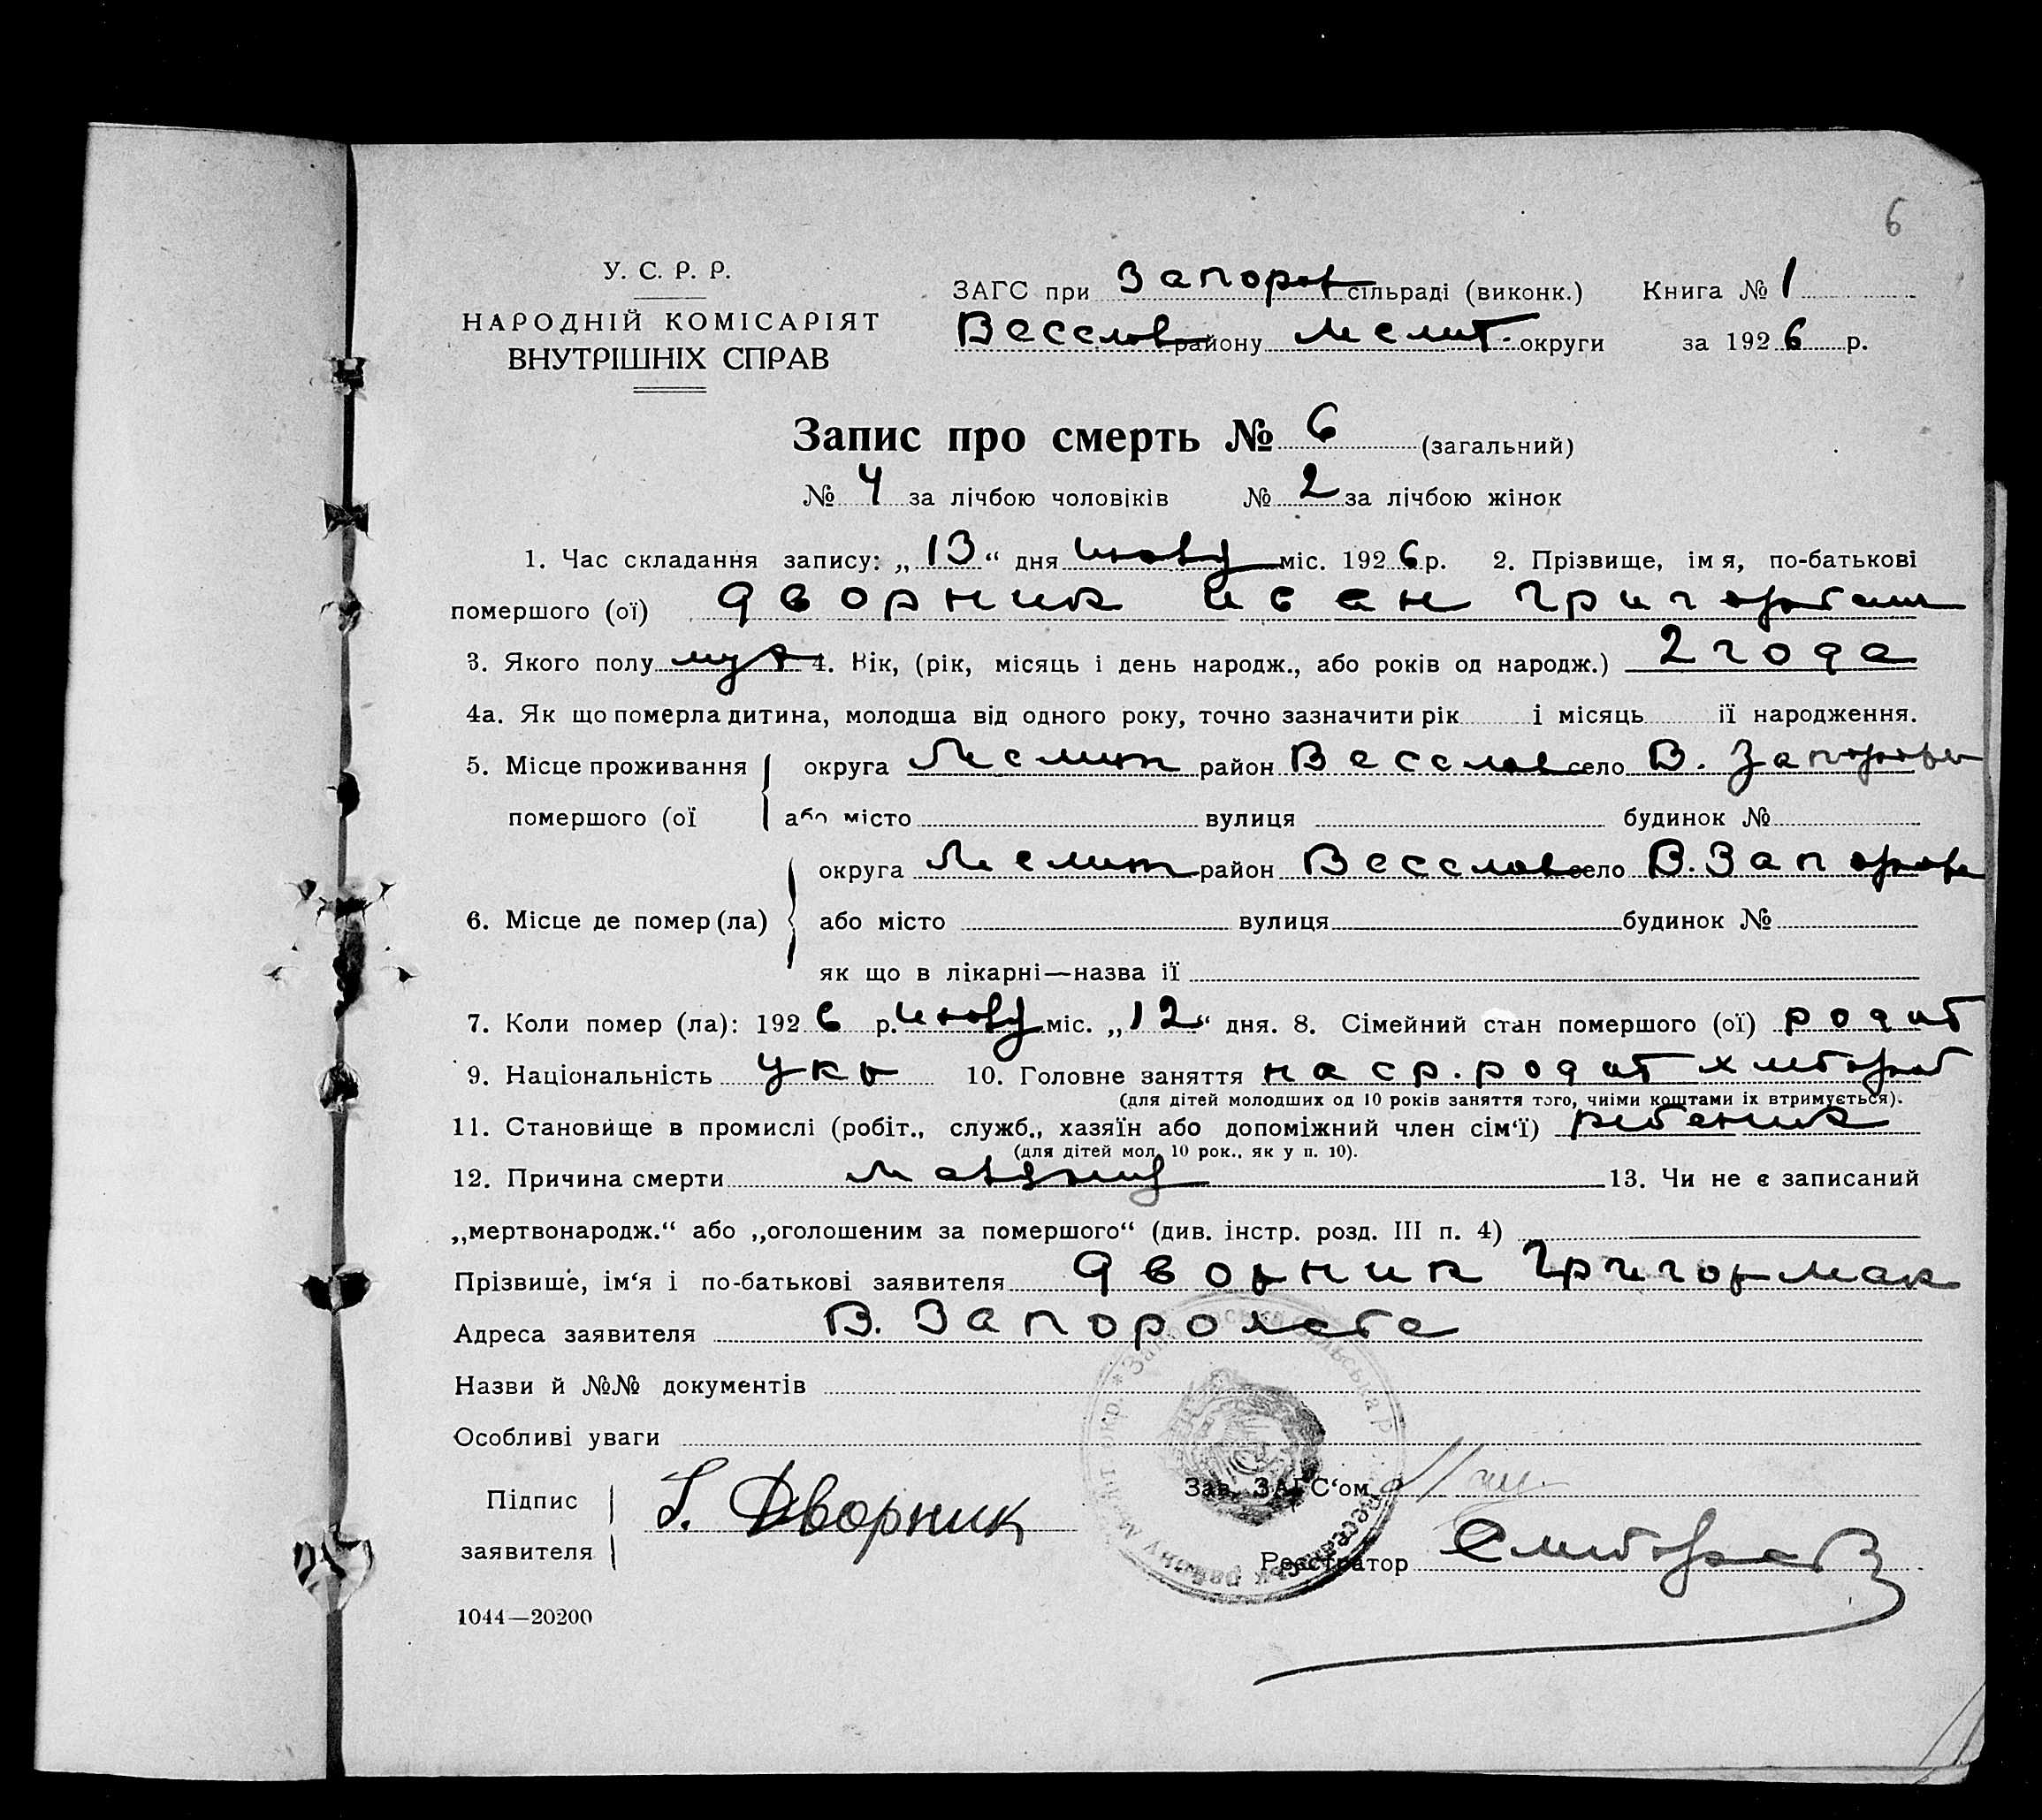 6
У. С. Р. Р.
НАРОДНІЙ КОМІСАРІЯТ
ВНУТРІШНІХ СПРАВ
ЗАГС при Запорож сільраді (виконк.) Книга № 1
Веселов району Мелит. округи за 1926 р.
Запис про смерть № 6 (загальний)
№ 4 за лічбою чоловіків № 2 за лічбою жінок
1. Час складання запису: „13“ дня міс. 1926 р. 2. Прізвище, імя, по-батькові
помершого (ої) Дворник Иван
3. Якого полу муж 4. Вік, (рік, місяць і день народж., або років од народж.) 2 года
4а. Як що померла дитина, молодша від одного року, точно зазначити рік і місяць її народження.
5. Місце проживання округа Мелит район Веселов село В. Запорожье
помершого (ої або місто вулиця будинок №
округа Мелит район Веселов село В. Запорож
6. Місце де помер (ла) або місто вулиця будинок №
як що в лікарні—назва її
7. Коли помер (ла): 1926 р. міс. „12“ дня. 8. Сімейний стан помершого (ої)
9. Національність Укр 10. Головне заняття на ср. родит хлебороб
(для дітей молодших од 10 років заняття того, чиїми коштами їх втримується).
11. Становище в промислі (робіт., служб., хазяїн або допоміжний член сім‘ї) ребеник
(для дітей мол. 10 рок., як у п. 10).
12. Причина смерти 13. Чи не є записаний
„мертвонародж.“ або „оголошеним за помершого“ (див. інстр. розд. III п. 4)
Прізвище, ім‘я і по-батькові заявителя Дворник Григор
Адреса заявителя В.
Назви й №№ документів
Особливі уваги
Підпис
заявителя
Дворник
Зав. ЗАГС‘ом
Реєстратор
1044—20200